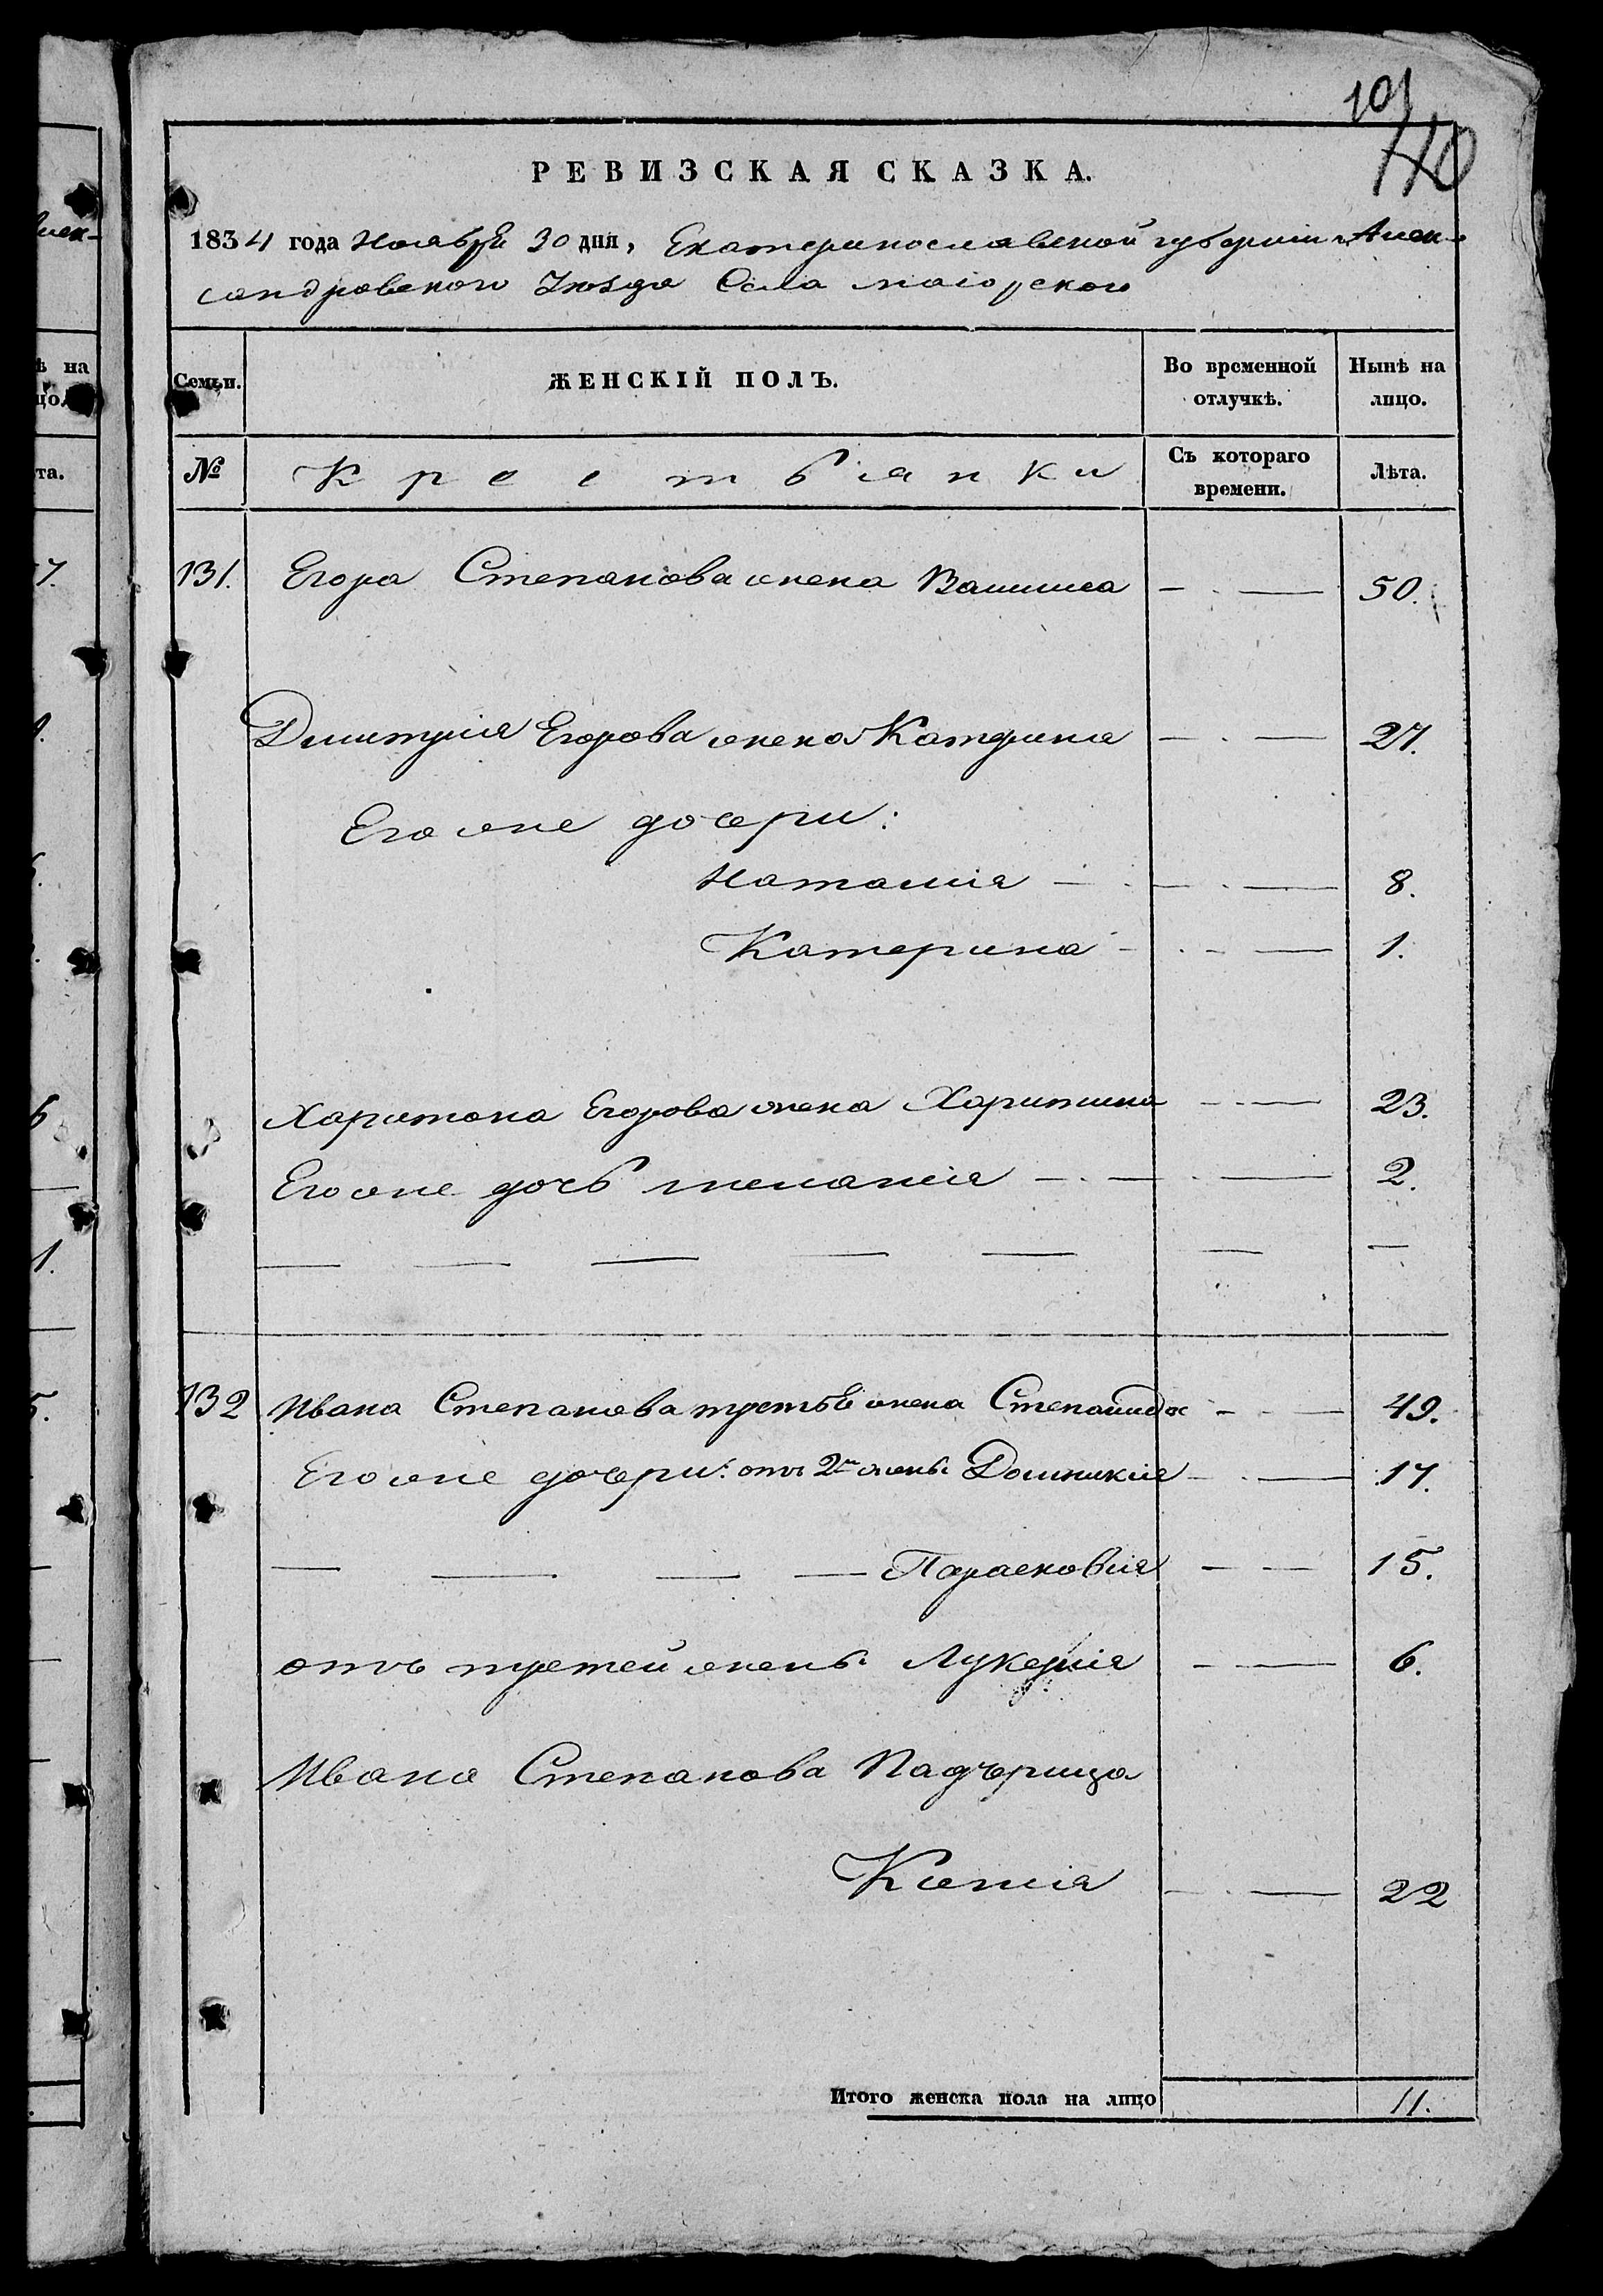 101
110
РЕВИЗСКАЯ СКАЗКА.
1834 года Ноября 30 дня, Екатеринославской губернiи Алек-
сандровского Уѣзда Села маiорского
Семьи. ЖЕНСКIЙ ПОЛЪ. Во временной отлучкѣ. Нынѣ на лицо.
№ Крестьянки Съ котораго времени. Лѣта.
131. Егора Степанова жена Васшиса — . — 50.
Дмитрия Егорова жена Катерина — . — 27.
Его же дочери:
Наталiя — . — . — 8.
Катерина - . - — 1.
Харитона Егорова жена Харитина — . — 23.
Его же дочь меланiя — . — . — 2.
— — — — — — —
132 Ивана Степанова третья жена Степанида - - — 49.
Его же дочери: отъ 2й жены Домникiя — . — 17.
— — — — Парасковiя — — 15.
отъ третей жены Лукерiя — — 6.
Ивана Степанова Падчерица
Ксенiя — . — 22
Итого женска пола на лицо 11.